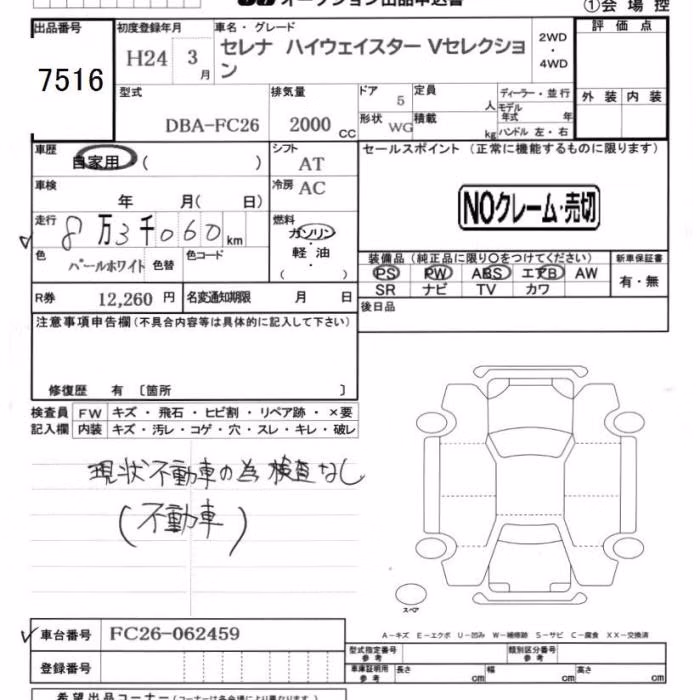 オークション出品申込書
①会場控
出品番号
7516
初度登録年月
H24 3月
車名・グレード
セレナ ハイウェイスター Vセレクション
2WD・4WD
評価点
型式
DBA-FC26
排気量
2000 cc
ドア 5
形状 WG
定員 人
積載 kg
ディーラー・並行
モデル年式 年
ハンドル 左・右
外装 内装
車歴
自家用 ( )
シフト AT
セールスポイント (正常に機能するものに限ります)
車検
年 月( 日)
冷房 AC
NOクレーム・売切
走行
8万3千060km
燃料
ガソリン
軽油
( ・ )
色
パールホワイト
色替
色コード
装備品 (純正品に限り○をつけてください)
新車保証書
PS PW ABS エアB AW
SR ナビ TV カワ
有・無
R券 12,260 円
名変通知期限 月 日
後日品
注意事項申告欄 (不具合内容等は具体的に記入して下さい)
修復歴 有 〔箇所 〕
検査員 FW キズ・飛石・ヒビ割・リペア跡・×要
記入欄 内装 キズ・汚レ・コゲ・穴・スレ・キレ・破レ
現状不動車の為検査なし
(不動車)
スペア
A-キズ E-エクボ U-凹み W-補修跡 S-サビ C-腐食 XX-交換済
車台番号 FC26-062459
登録番号
型式指定番号 参考
類別区分番号 参考
車庫証明用 参考
長さ cm 幅 cm 高さ cm
希望出品コーナー (コーナーは各会場により異なります)